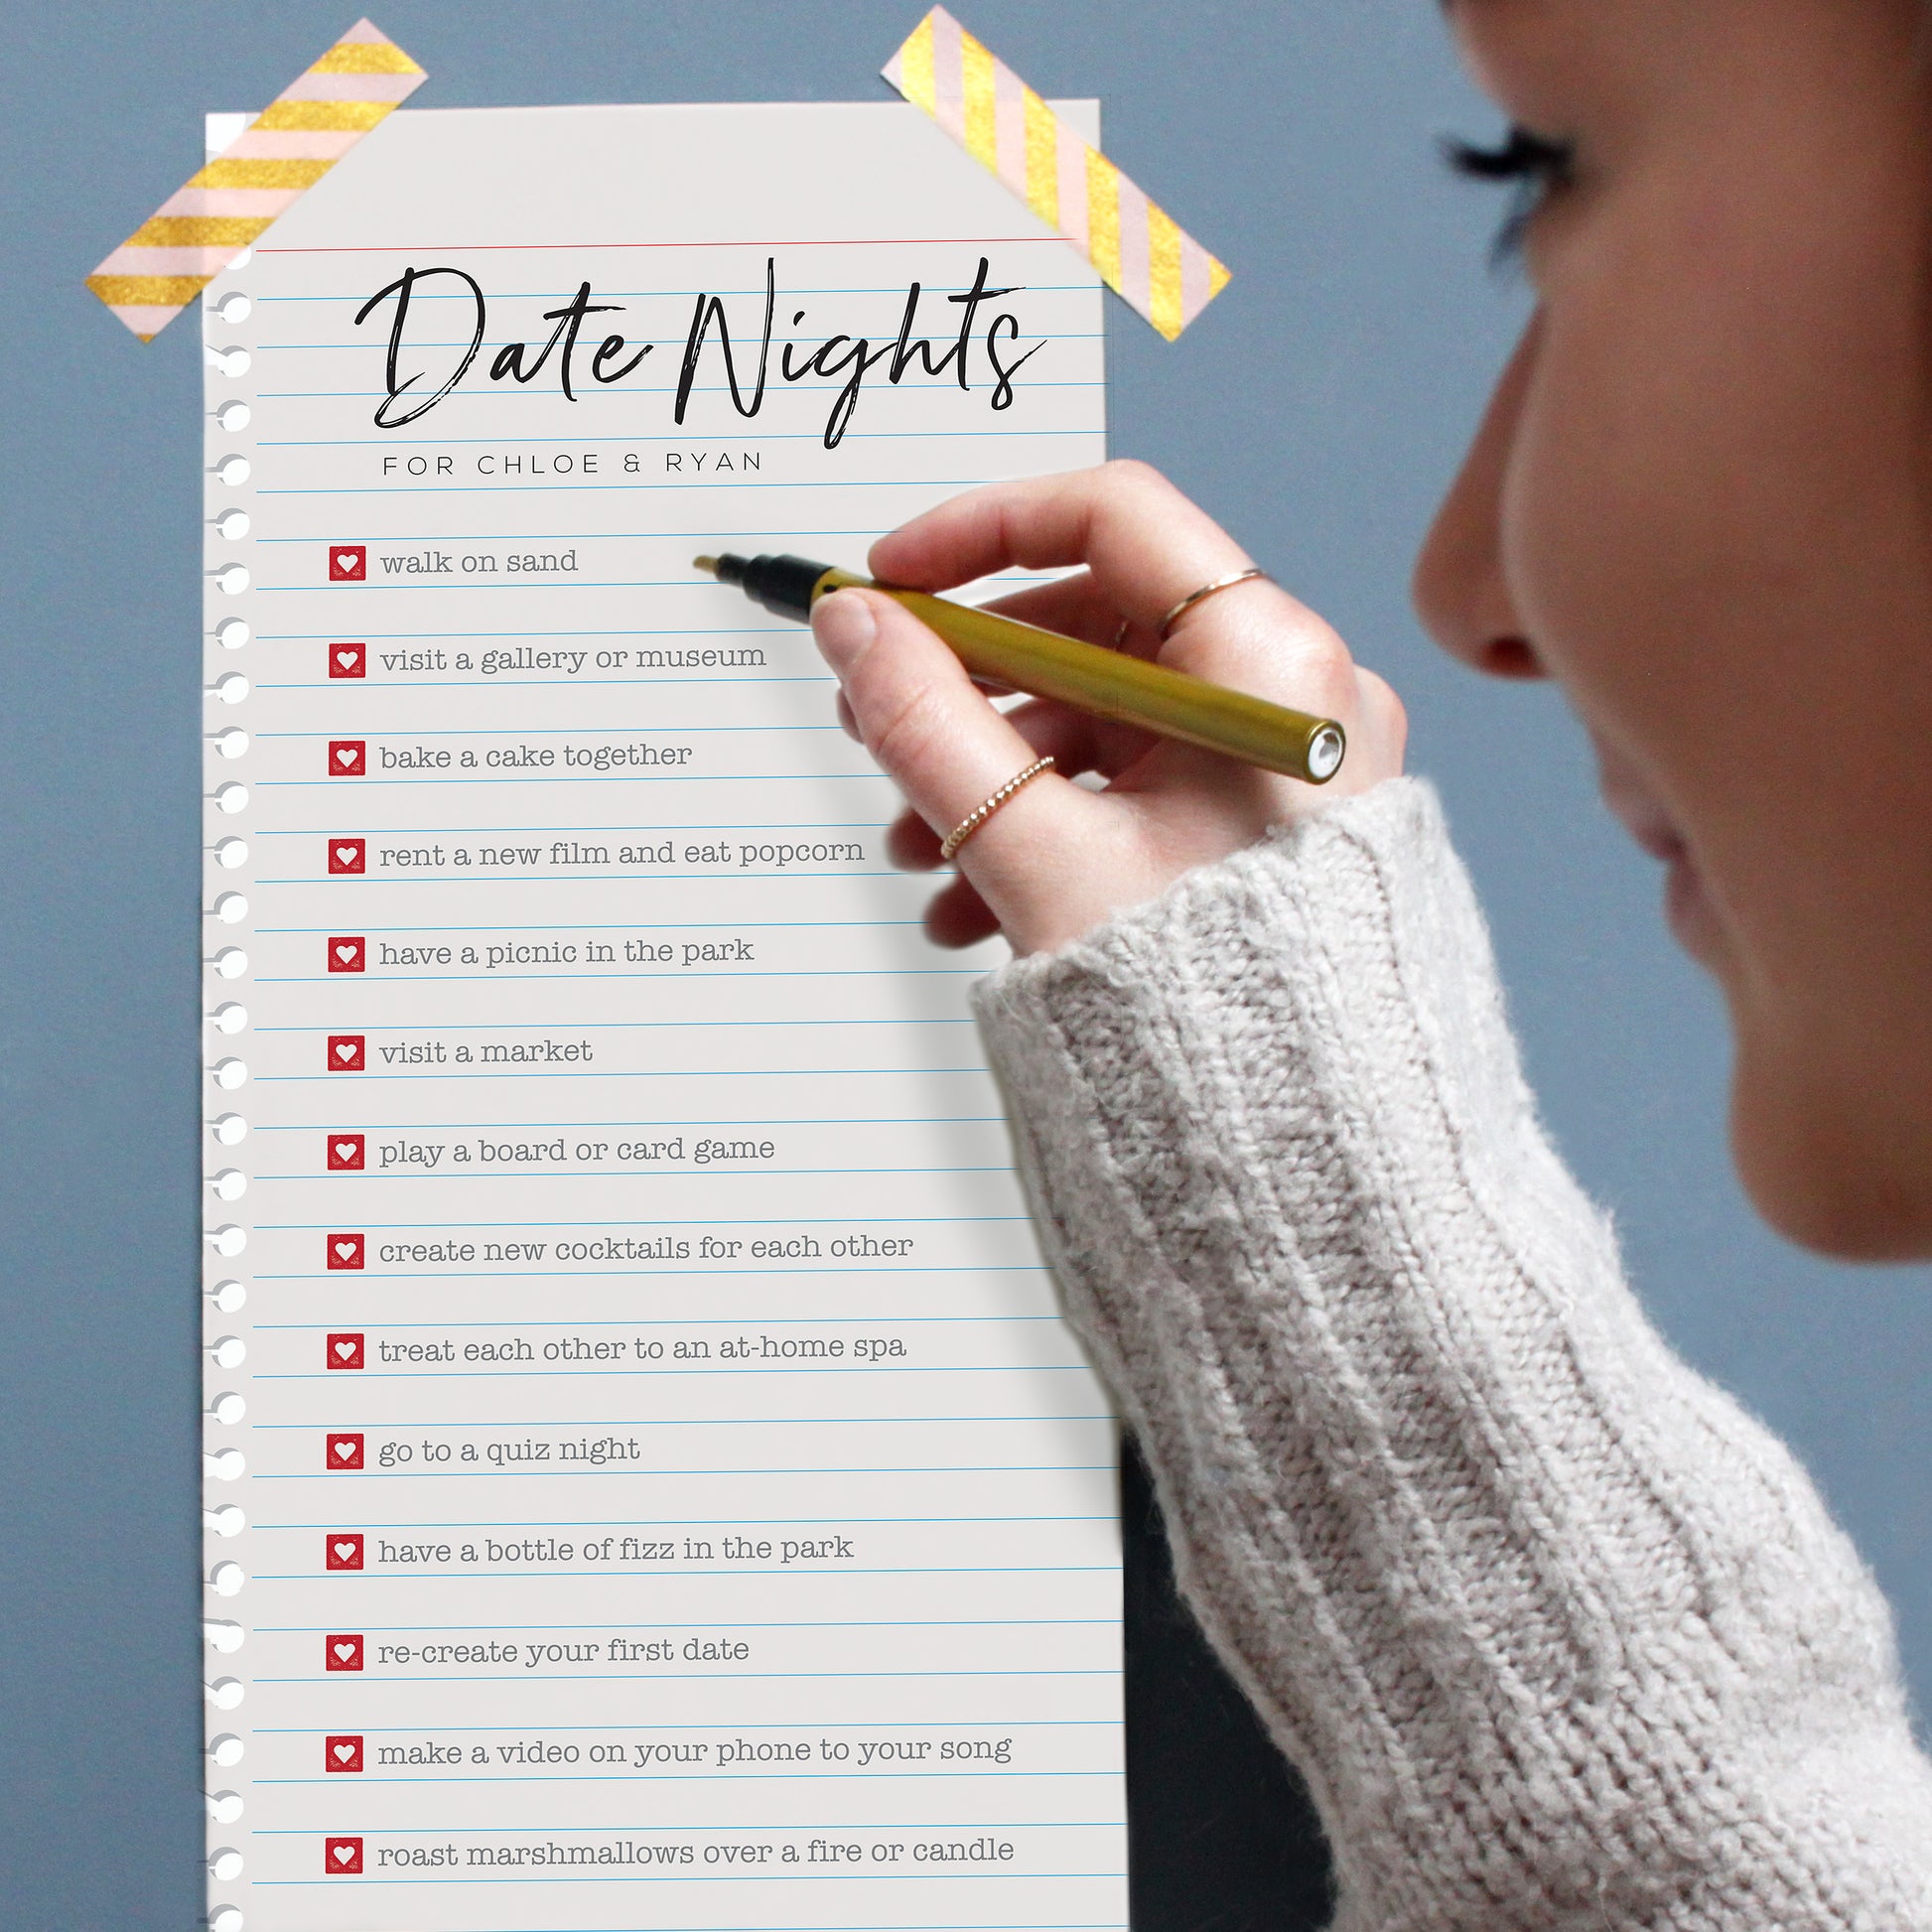 Date Nights
FOR CHLOE & RYAN
walk on sand
visit a gallery or museum
bake a cake together
rent a new film and eat popcorn
have a picnic in the park
visit a market
play a board or card game
create new cocktails for each other
treat each other to an at-home spa
go to a quiz night
have a bottle of fizz in the park
re-create your first date
make a video on your phone to your song
roast marshmallows over a fire or candle